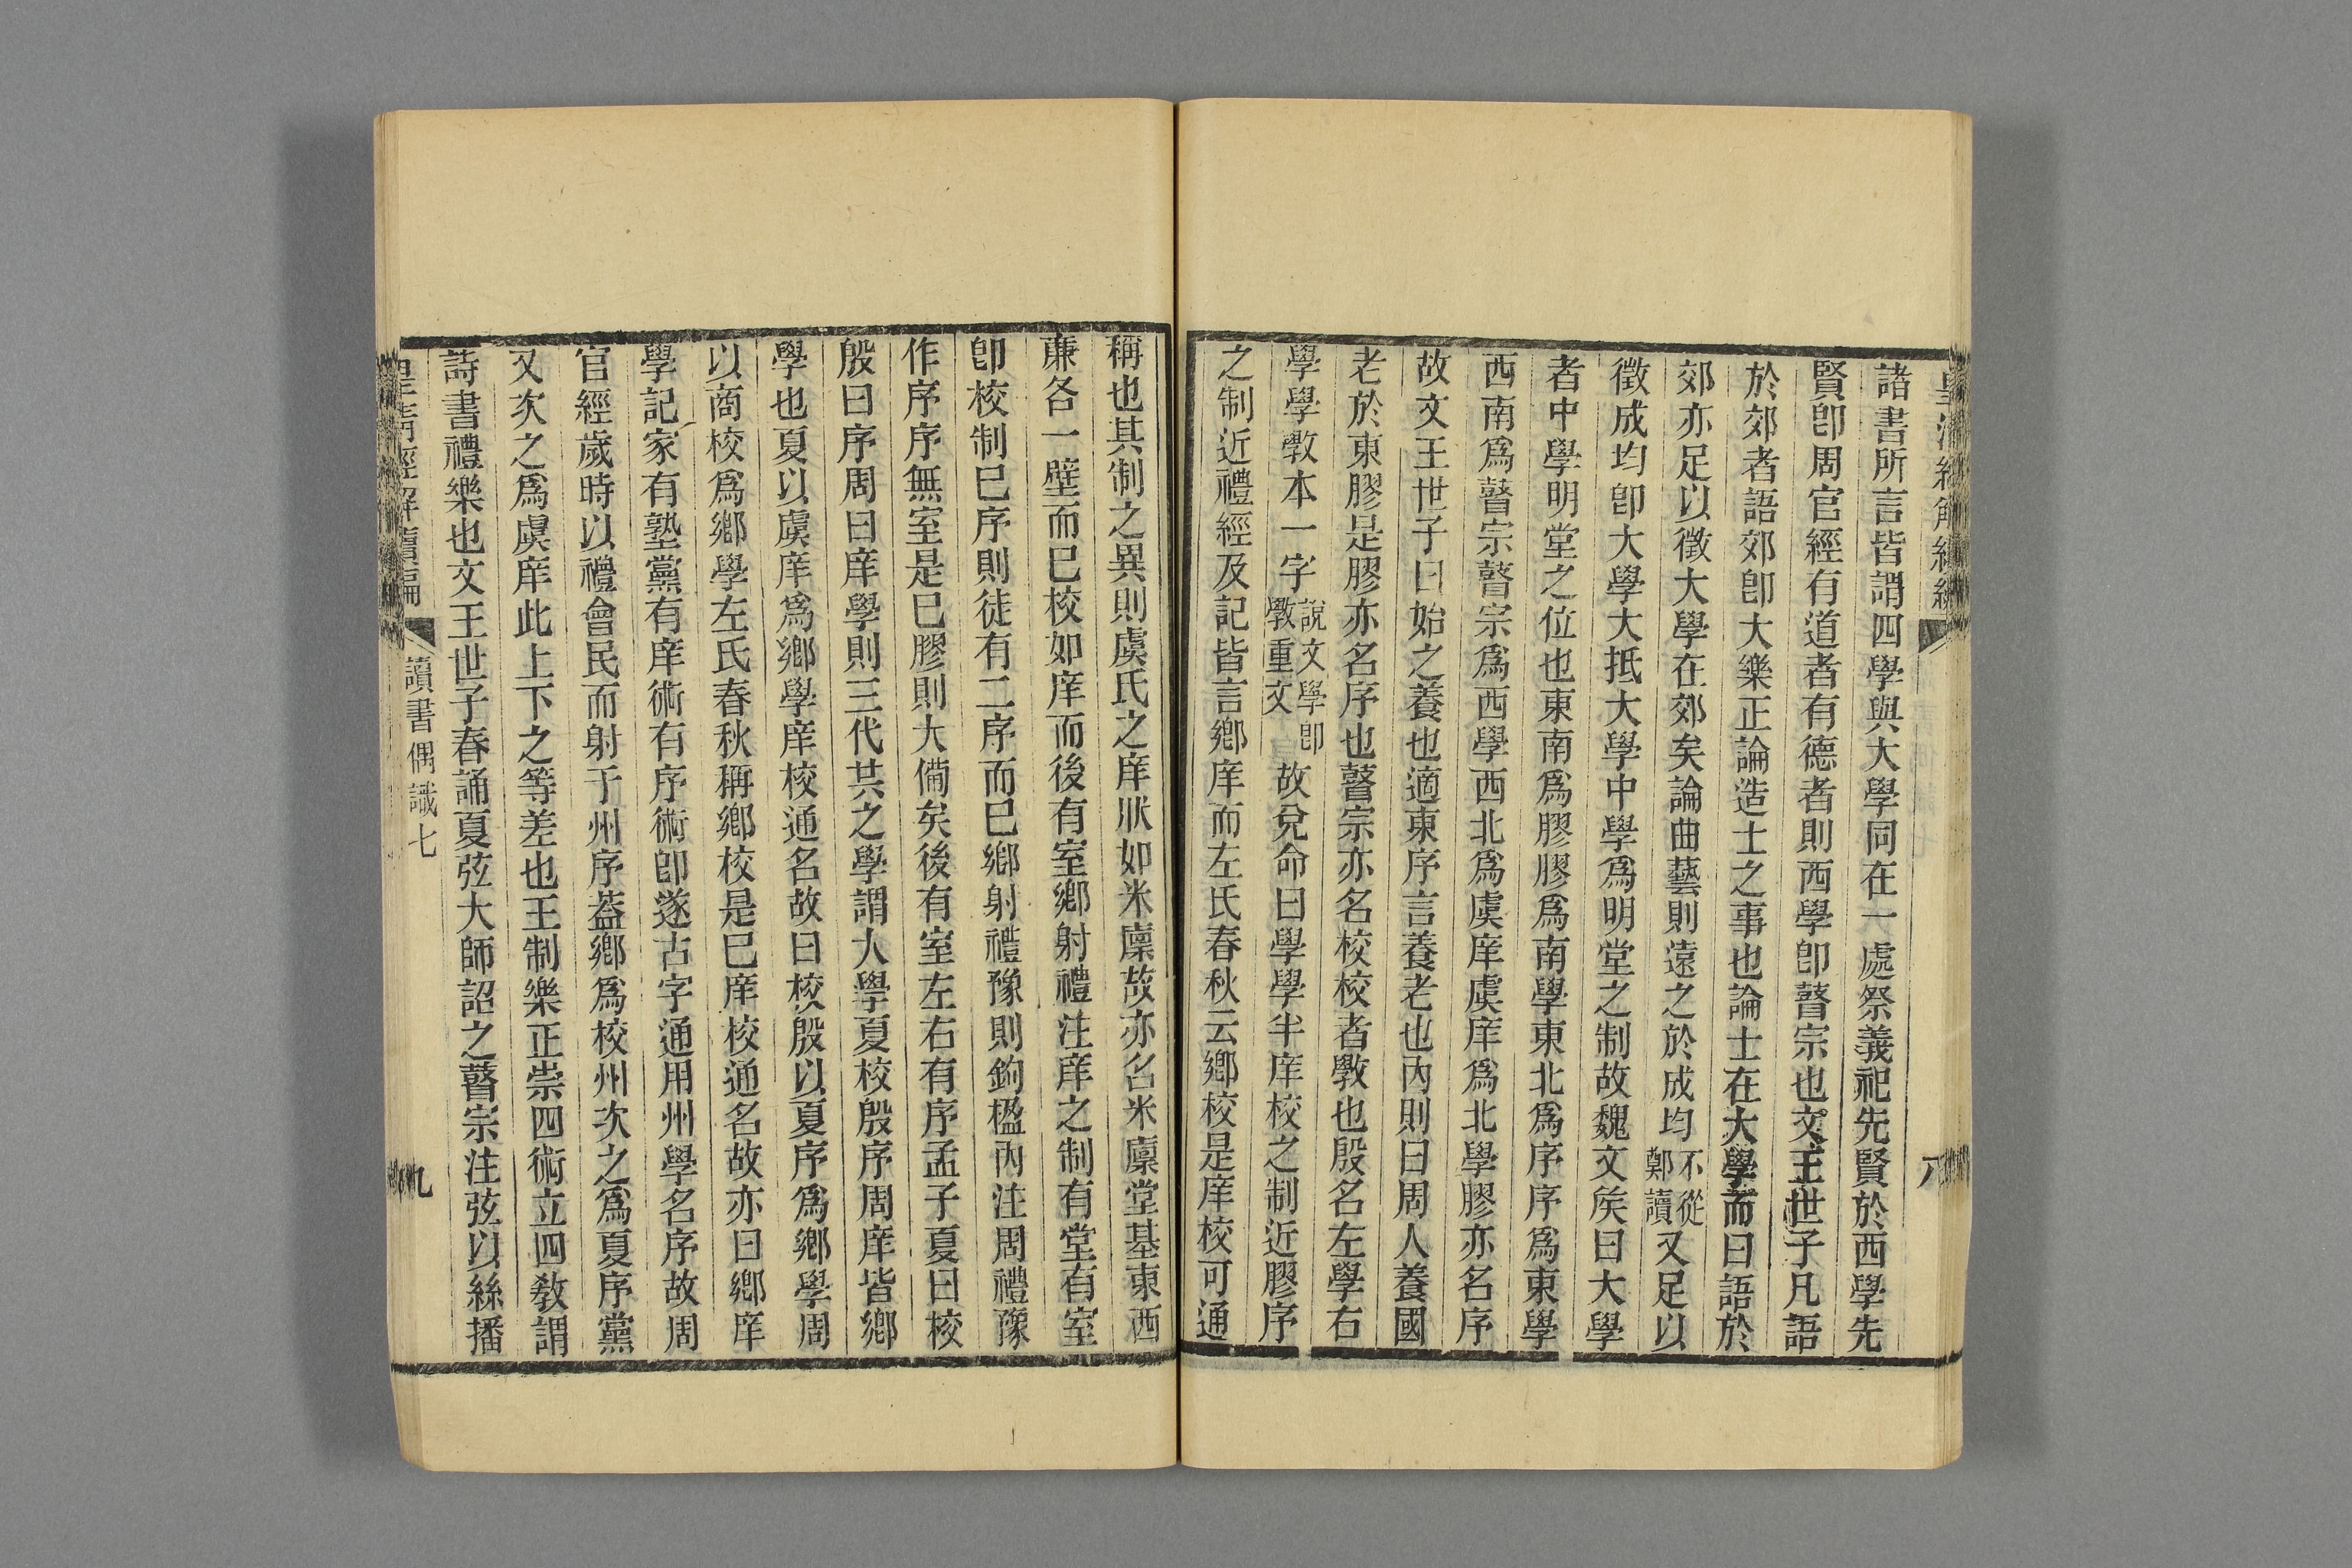 諸書所言皆謂四學與大學同在一處祭義祀先賢於西學先
賢卽周官經有道者有德者則西學卽瞽宗也文王世子凡語
於郊者語郊卽大樂正論造士之事也論士在大學而曰語於
郊亦足以徵大學在郊矣論曲藝則遠之於成均不從鄭讀又足以
徵成均卽大學大抵大學中學爲明堂之制故魏文侯曰大學
者中學明堂之位也東南爲膠膠爲南學東北爲序序爲東學
西南爲瞽宗瞽宗爲西學西北爲虞庠虞庠爲北學膠亦名序
故文王世子曰始之養也適東序言養老也內則曰周人養國
老於東膠是膠亦名序也瞽宗亦名校校者斆也殷名左學右
學學斆本一字說文學卽斆重文故兌命曰學學半庠校之制近膠序
之制近禮經及記皆言鄉庠而左氏春秋云鄉校是庠校可通
稱也其制之異則虞氏之庠狀如米廩故亦名米廩堂基東西
亷各一壁而巳校如庠而後有室鄉射禮注庠之制有堂有室
卽校制巳序則徒有二序而巳鄉射禮豫則鉤楹內注周禮豫
作序序無室是巳膠則大備矣後有室左右有序孟子夏曰校
殷曰序周曰庠學則三代共之學謂大學夏校殷序周庠皆鄉
學也夏以虞庠爲鄉學庠校通名故曰校殷以夏序爲鄉學周
以商校爲鄉學左氏春秋稱鄉校是巳庠校通名故亦曰鄉庠
學記家有塾黨有庠術有序術卽遂古字通用州學名序故周
官經歲時以禮會民而射于州序葢鄉爲校州次之爲夏序黨
又次之爲虞庠此上下之等差也王制樂正崇四術立四敎謂
詩書禮樂也文王世子春誦夏弦大師詔之瞽宗注弦以絲播
皇淸經解續編
讀書偶識七
九